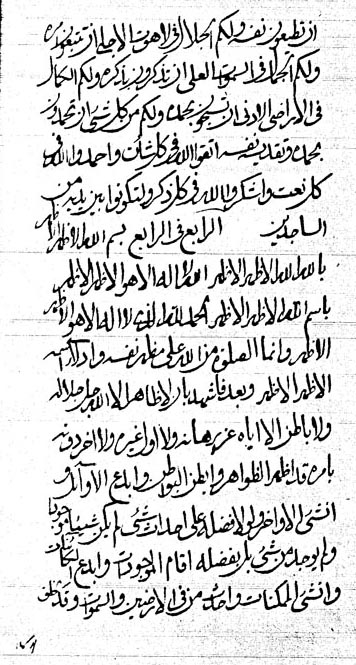 ان تطيعون نفسه ولكم الجلال في لاهوت ان تتبعون
ولكم الجمال في السموات العلى ان تذكرون بذكره ولكم الكمال
في الاراضي الادنى ان تسبحون بحمده ولكم من كل شئ ان تحمدون
بحمده وتقديس نفسه اتقوا الله في كل شأن واحمدوا الله في
كل نعت واشكروا الله في كل ذكر ولتكونوا بين يديه من
الساجدين الرابع في الرابع بسم الله الاظهر الاظهر
بالله الله الاظهر الاظهر الله لا اله الا هو الاظهر الاظهر
باسم الله الاظهر الاظهر الحمد لله الذي لا اله الا هو الاظهر
الاظهر وانما من الله على مظهر نفسه وادلاء
الاظهر الاظهر وبعد فاشهد بان لا ظاهر الا الله جل جلاله
ولا باطن الا اياه عز برهانه ولا اول غيره ولا اخر دونه
بامره قد اظهر الظواهر وابطن البواطن وابدع الاوائل و
انشئ الاواخر ولولا فضله على احداث شئ لم يكن شيئا موجودا
ولم يوجد من شئ بل بفضله اقام الموجودات وابدع الكائنات
وانشئ الممكنات واحدث من في الارضين والسموات وقد خلق